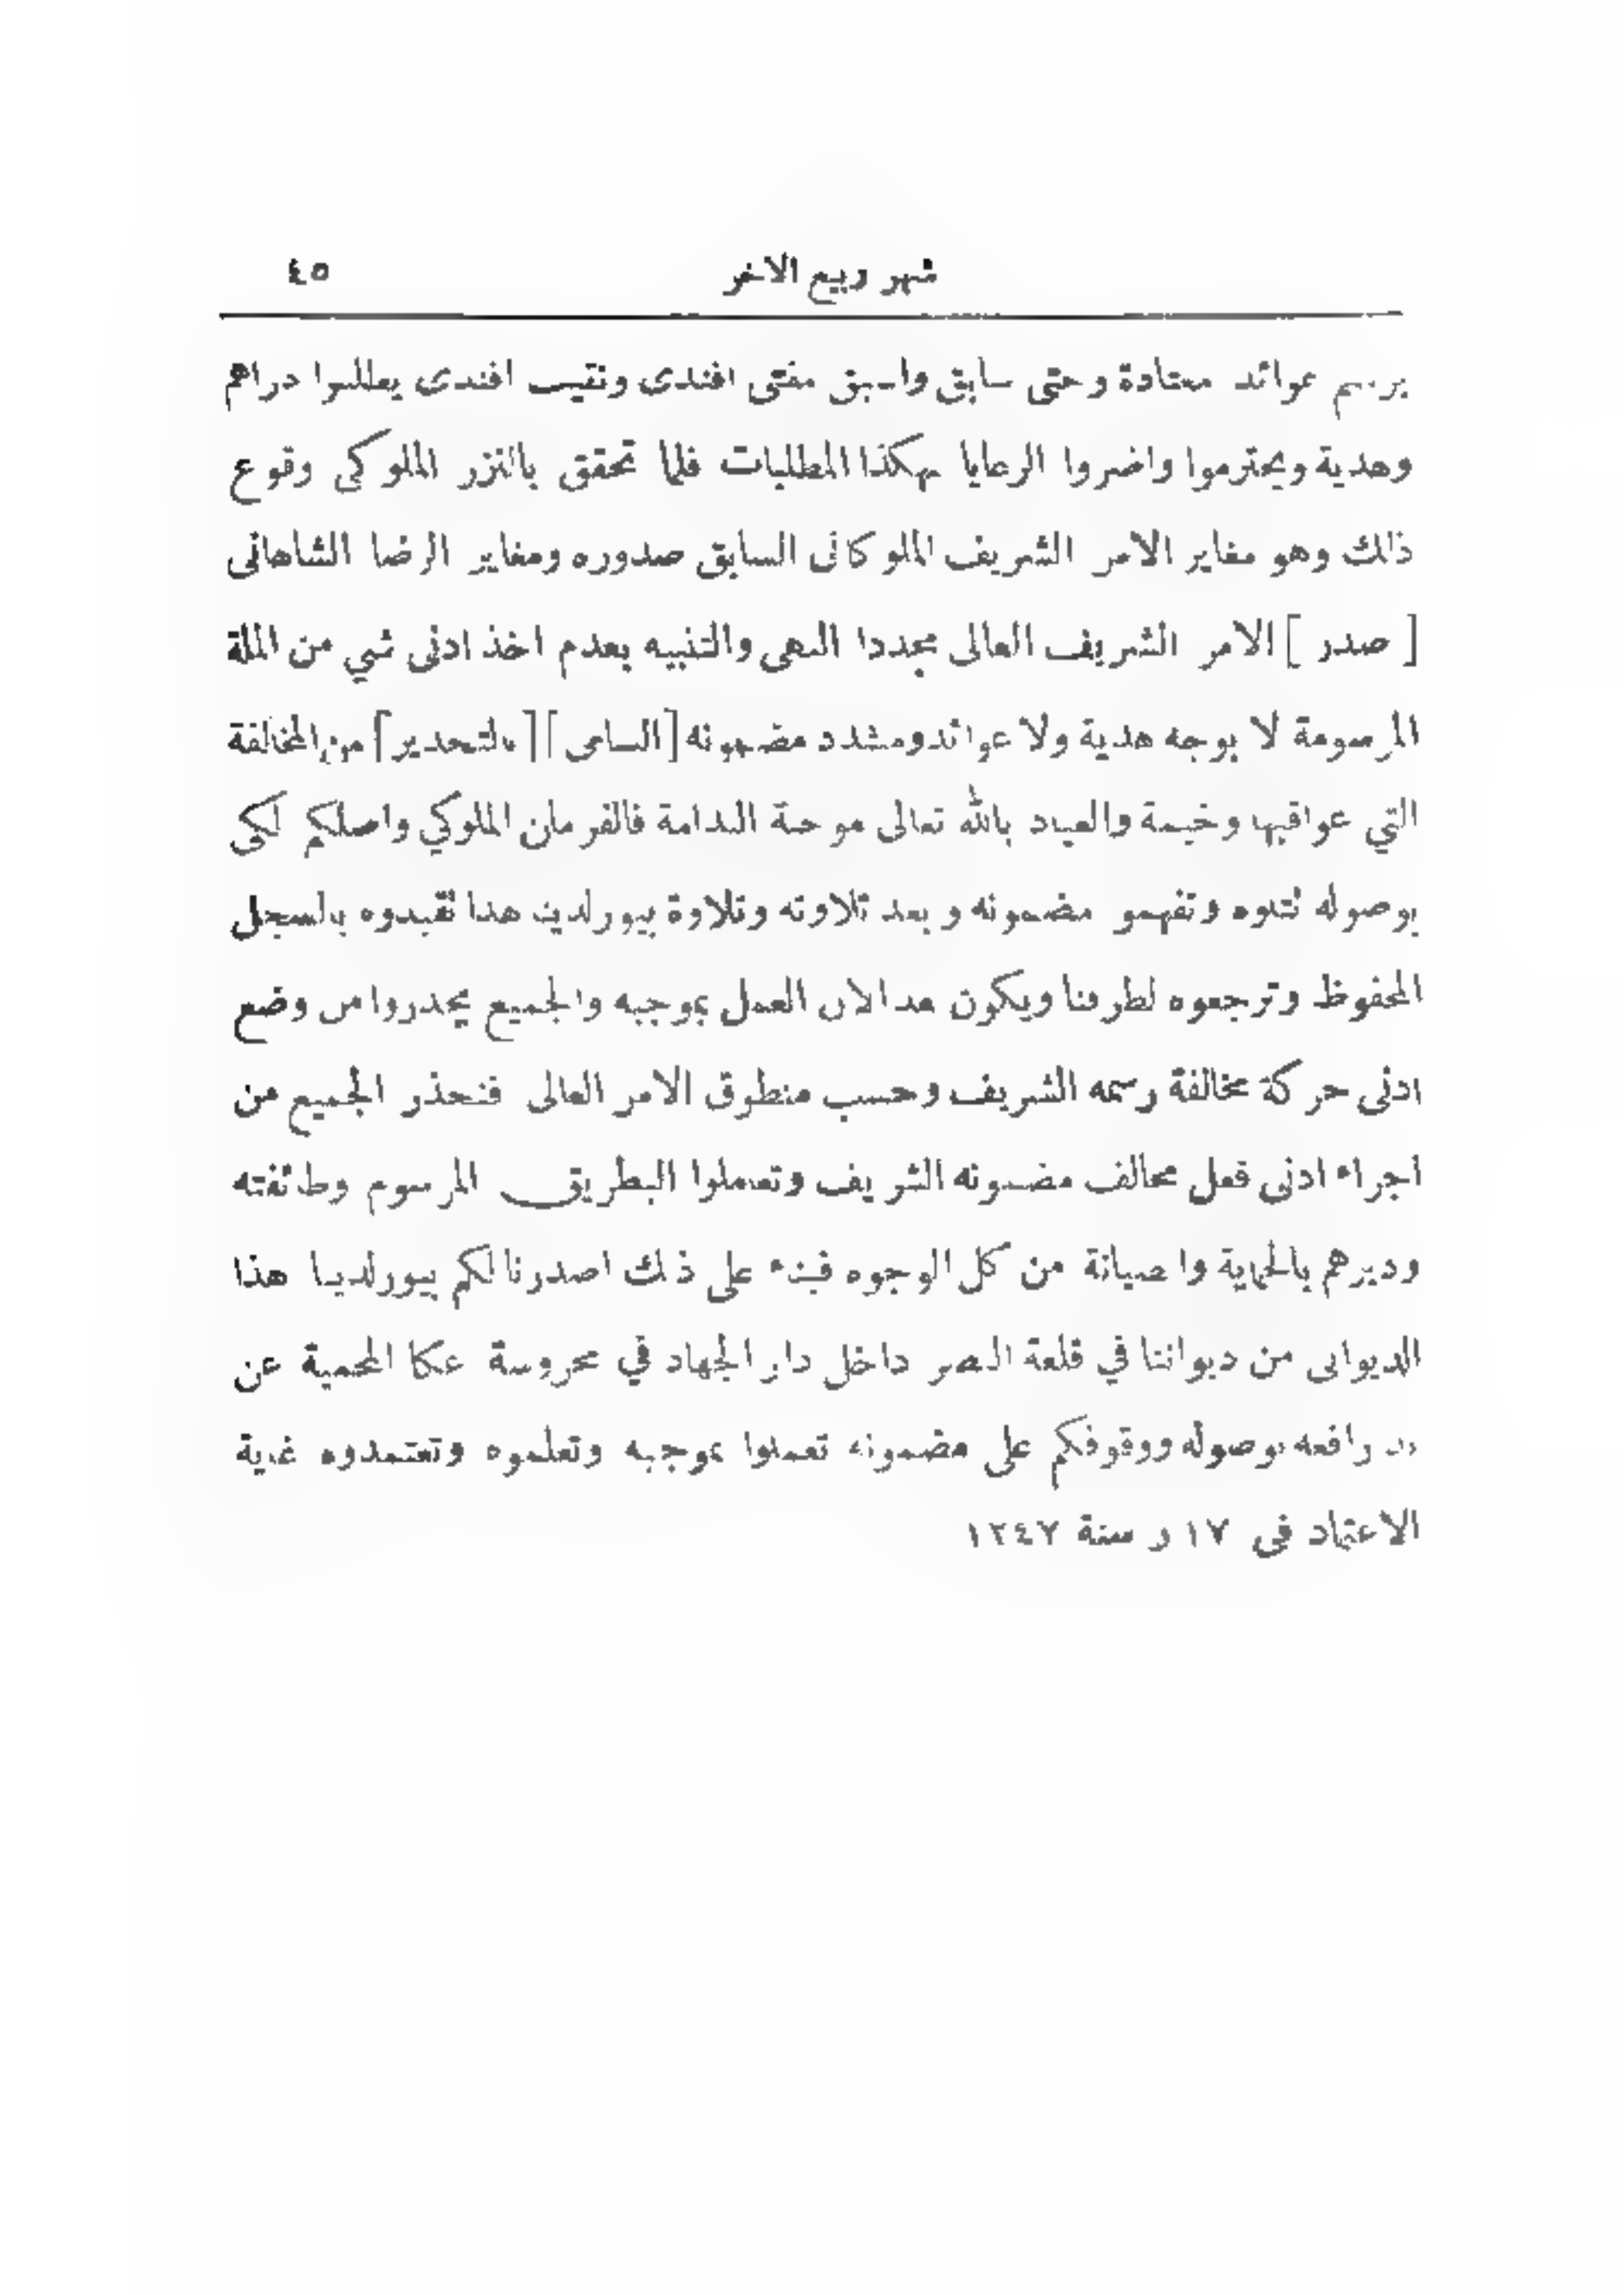 شهر ربيع الاخر ٤٥
برسم عوائد معتادة وحتى سابق واسبق مفتى افندى ونقيب افندى يطلبوا دراهم
وهدية ويحترموا واضروا الرعايا بهكذا المطلبات فلما تحقق بالنزر الملوكى وقوع
ذلك وهو مغاير الامر الشريف الملوكانى السابق صدوره ومغاير الرضا الشاهانى
[ صدر ] الامر الشريف العالى مجددا النهى والتنبيه بعدم اخذ ادنى شي من الملة
المرسومة لا بوجه هدية ولا عوائد ومشدد مضمونه [السامى] [بالتحذير] من المخالفة
التي عواقبها وخيمة والعياد بالله تعالى موجبة الندامة فالفرمان الملوكي واصلكم لكى
بوصوله تتلوه وتفهمو مضمونه و بعد تلاوته وتلاوة بيورلدينا هذا تقيدوه بالسجل
المحفوظ وترجعوه لطرفنا ويكون بعد الان العمل بموجبه والجميع يحذروا من وضع
ادنى حركة مخالفة رسمه الشريف وحسب منطوق الامر العالى فنحذر الجميع من
اجراء ادنى فعل مخالف مضمونه الشريف وتعاملوا البطريق المرسوم وطائفته
وديرهم بالحماية واصيانة من كل الوجوه فبناء على ذلك اصدرنا لكم بيورلديا هذا
الديوانى من ديواننا في قلعة النصر داخل دار الجهاد في محروسة عكا المحمية عن
يد رافعه بوصوله ووقوفكم على مضمونه تعملوا بموجبه وتعلموه وتعتمدوه غاية
الاعتماد فى ١٧ ر سنة ١٢٤٧